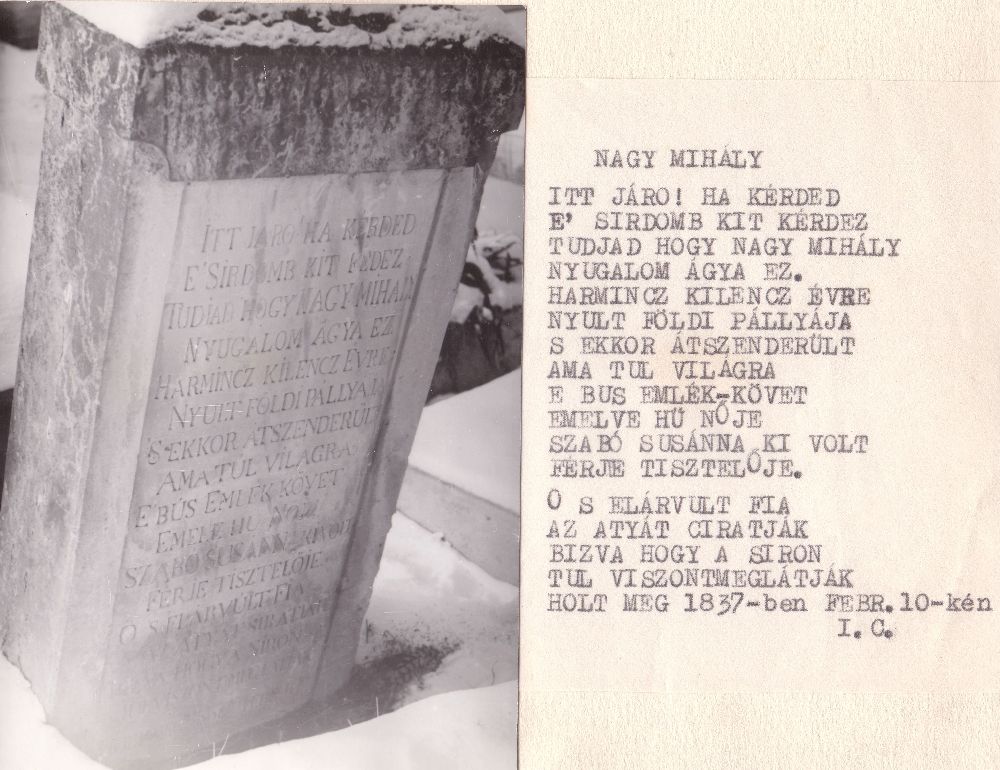 ITT JARO HA KÉRDED
E' SÍRDOMB KIT FEDEZ
TUDJAD HOGY NAGY MIHÁLY
NYUGALOM ÁGYA EZ
HARMINCZ KILENCZ ÉVRE
NYULT FÖLDI PÁLLYAJA
'S EKKOR ÁTSZENDERÜLT
AMA TUL VILÁGRA
E' BÚS EMLÉK KÖVET
EMELE HŰ
SZABO SUSANNA KI VOLT
FÉRJE TISZTELŐJE.
Ő S ELÁRVULT FIA
NAGY MIHÁLY
ITT JÁRO! HA KÉRDED
E' SIRDOMB KIT KÉRDEZ
TUDJAD HOGY NAGY MIHÁLY
NYUGALOM ÁGYA EZ.
HARMINCZ KILENCZ ÉVRE
NYULT FÖLDI PÁLLYÁJA
S EKKOR ÁTSZENDERÜLT
AMA TUL VILÁGRA
E BUS EMLÉK-KÖVET
EMELVE HÜ NŐJE
SZABÓ SUSÁNNA KI VOLT
FÉRJE TISZTELŐJE.
Ő S ELÁRVULT FIA
AZ ATYÁT CIRATJÁK
BIZVA HOGY A SIRON
TUL VISZONTMEGLÁTJÁK
HOLT MEG 1837-ben FEBR.10-kén
I.C.